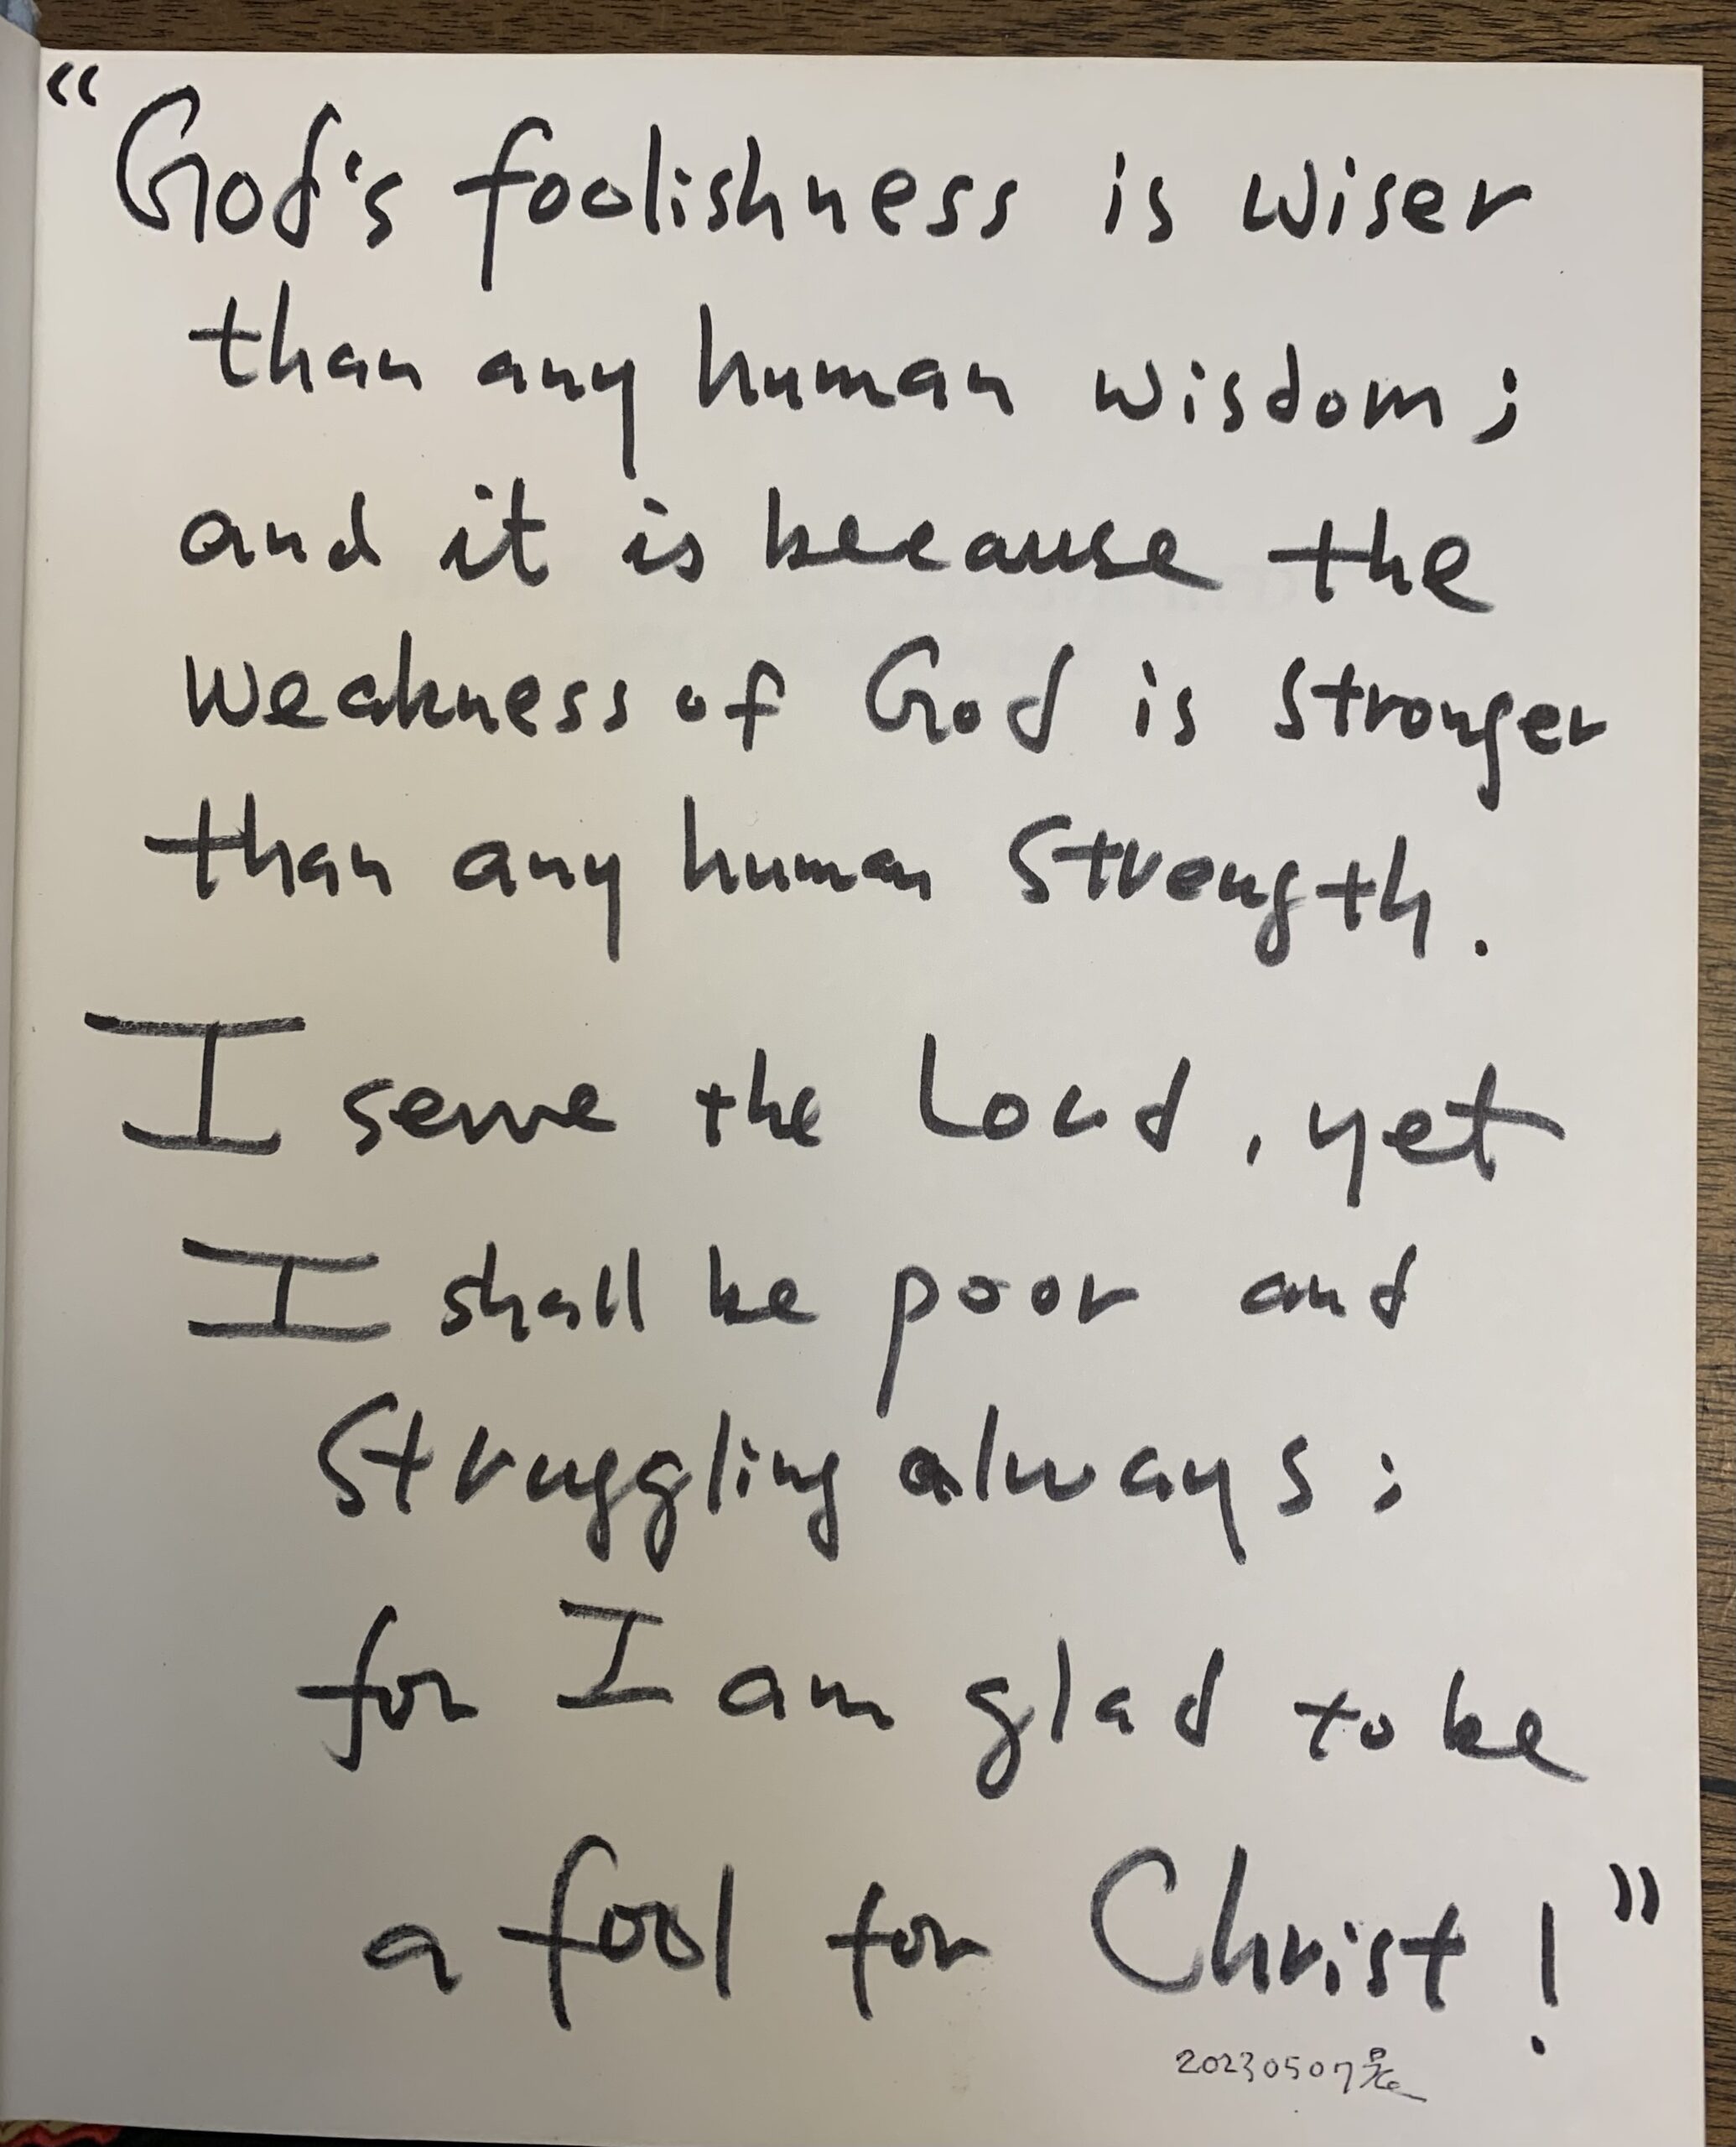 “God's foolishness is wiser
than any human wisdom;
and it is because the
weakness of God is stronger
than any human strength.
I serve the Lord, yet
I shall be poor and
struggling always:
for I am glad to be
a fool for Christ!”
20230507